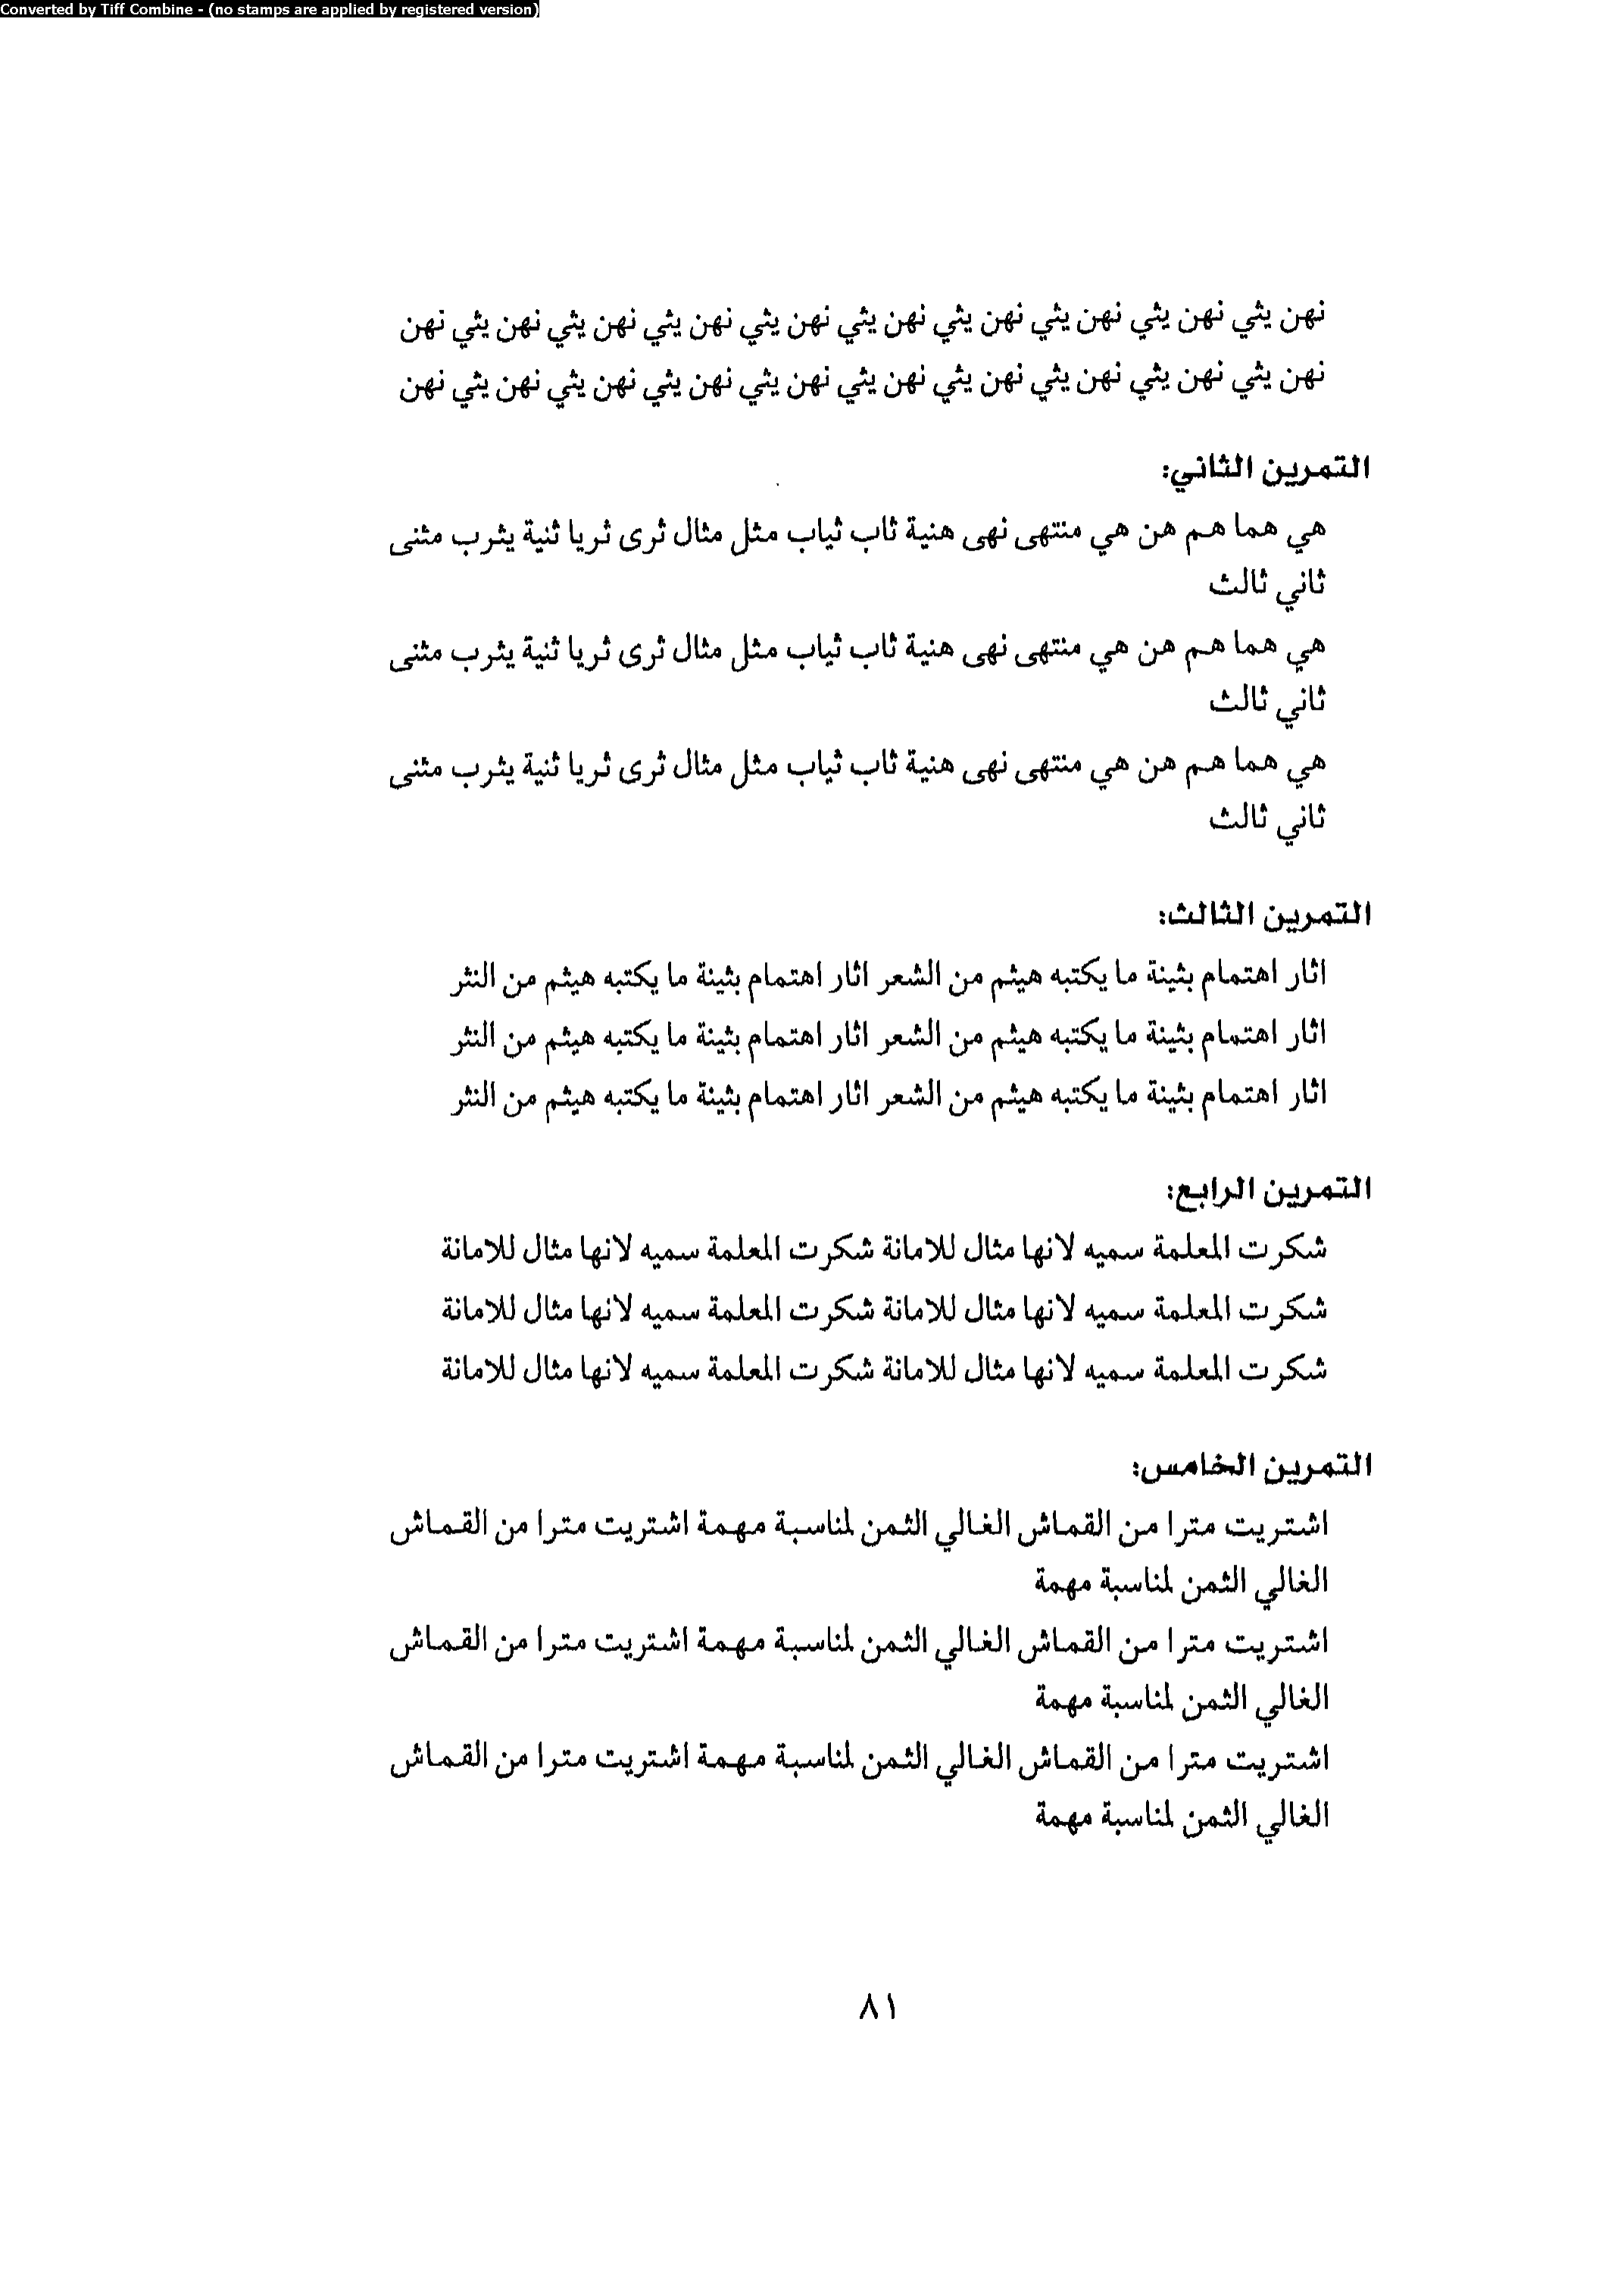 Converted by Tiff Combine - (no stamps are applied by registered version)
نهن يثي نهن يثي نهن يثي نهن يثي نهن يثي نهن يثي نهن يثي نهن يثي نهن يثي نهن
نهن يثي نهن يثي نهن يثي نهن يثي نهن يثي نهن يثي نهن يثي نهن يثي نهن يثي نهن
التمرين الثاني:
هي هما هم هن هي منتهى نهى هنية ثاب ثياب مثل مثال ثرى ثريا ثنية يثرب مثنى
ثاني ثالث
هي هما هم هن هي منتهى نهى هنية ثاب ثياب مثل مثال ثرى ثريا ثنية يثرب مثنى
ثاني ثالث
هي هما هم هن هي منتهى نهى هنية ثاب ثياب مثل مثال ثرى ثريا ثنية يثرب مثنى
ثاني ثالث
التمرين الثالث:
اثار اهتمام بثينة ما يكتبه هيثم من الشعر اثار اهتمام بثينة ما يكتبه هيثم من النثر
اثار اهتمام بثينة ما يكتبه هيثم من الشعر اثار اهتمام بثينة ما يكتبه هيثم من النثر
اثار اهتمام بثينة ما يكتبه هيثم من الشعر اثار اهتمام بثينة ما يكتبه هيثم من النثر
التمرين الرابع:
شكرت المعلمة سميه لانها مثال للامانة شكرت المعلمة سميه لانها مثال للامانة
شكرت المعلمة سميه لانها مثال للامانة شكرت المعلمة سميه لانها مثال للامانة
شكرت المعلمة سميه لانها مثال للامانة شكرت المعلمة سميه لانها مثال للامانة
التمرين الخامس:
اشتريت مترا من القماش الغالي الثمن لمناسبة مهمة اشتريت مترا من القماش
الغالي الثمن لمناسبة مهمة
اشتريت مترا من القماش الغالي الثمن لمناسبة مهمة اشتريت مترا من القماش
الغالي الثمن لمناسبة مهمة
اشتريت مترا من القماش الغالي الثمن لمناسبة مهمة اشتريت مترا من القماش
الغالي الثمن لمناسبة مهمة
٨١